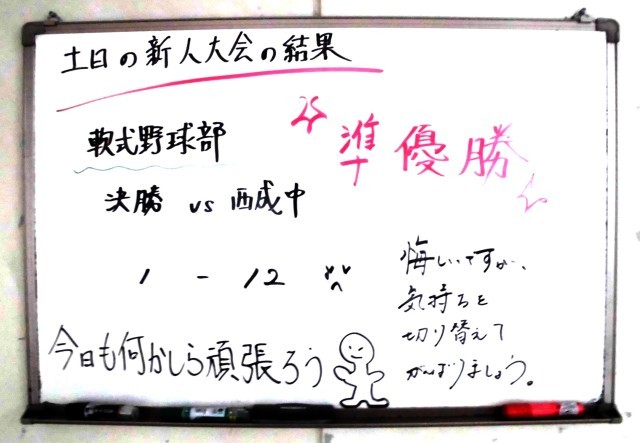 土日の新人大会の結果
軟式野球部
準優勝
決勝 vs 西成中
1 - 12
悔しいですが、
気持ちを
切り替えて
がんばりましょう。
今日も何かしら頑張ろう